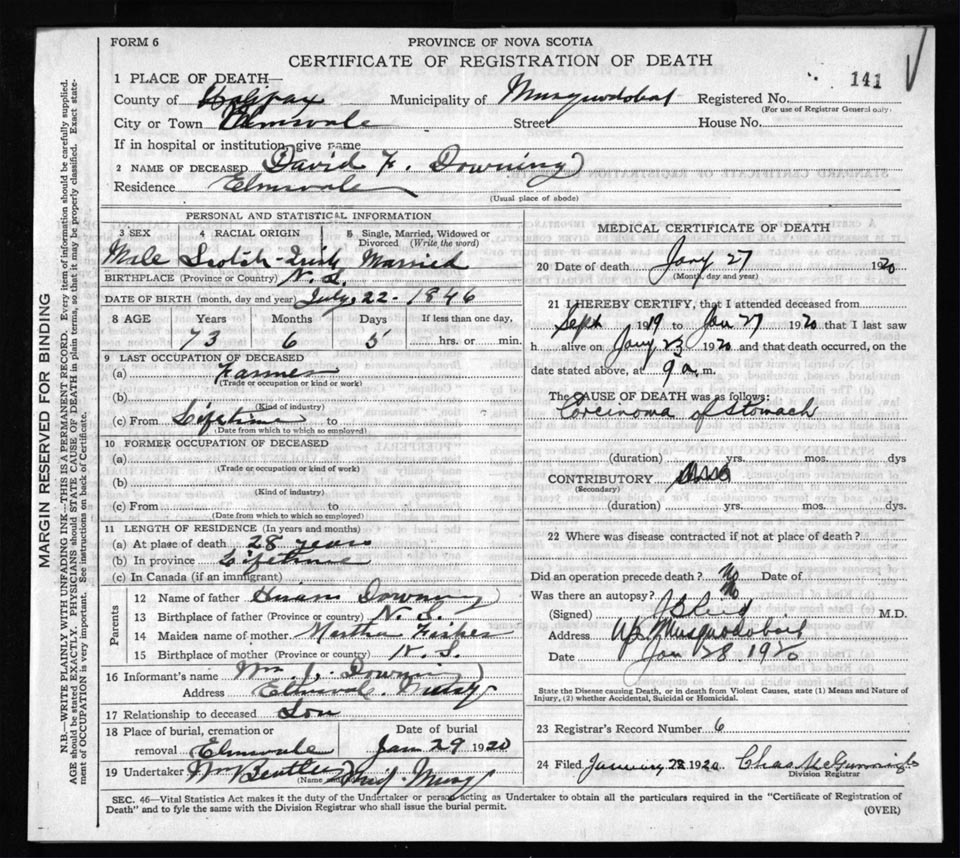 FORM 6
PROVINCE OF NOVA SCOTIA
CERTIFICATE OF REGISTRATION OF DEATH
141
1 PLACE OF DEATH—
County of Halifax Municipality of Musquodoboit Registered No.
(For use of Registrar General only)
City or Town Elmsvale Street House No.
If in hospital or institution, give name
2 NAME OF DECEASED David F. Downing
Residence Elmsvale
(Usual place of abode)
PERSONAL AND STATISTICAL INFORMATION
3 SEX 4 RACIAL ORIGIN 5 Single, Married, Widowed or Divorced (Write the word)
Male Scotch-Irish Married
BIRTHPLACE (Province or Country) N. S.
DATE OF BIRTH (month, day and year) July, 22 - 1846
8 AGE Years Months Days If less than one day,
73 6 5 hrs. or min.
9 LAST OCCUPATION OF DECEASED
(a) Farmer
(Trade or occupation or kind or work)
(b)
(Kind of industry)
(c) From Lifetime to
(Date from which to which so employed)
10 FORMER OCCUPATION OF DECEASED
(a)
(Trade or occupation or kind of work)
(b)
(Kind of industry)
(c) From to
(Date from which to which so employed)
11 LENGTH OF RESIDENCE (In years and months)
(a) At place of death 28 years
(b) In province Lifetime
(c) In Canada (if an immigrant)
Parents
12 Name of father Hiram Downing
13 Birthplace of father (Province or country) N. S.
14 Maiden name of mother Martha Fisher
15 Birthplace of mother (Province or country) N. S.
16 Informant's name Wm. J. Downing
Address Elmsvale. Musq.
17 Relationship to deceased Son
18 Place of burial, cremation or removal Elmsvale
Date of burial Jan 29 1920
19 Undertaker Wm Bentley Mid. Musq
(Name
MEDICAL CERTIFICATE OF DEATH
20 Date of death Jany 27 1920
(Month, day and year)
21 I HEREBY CERTIFY, that I attended deceased from
Sept 1919 to Jan 27 1920 that I last saw
h alive on Jany 23 1920 and that death occurred, on the
date stated above, at 9 a. m.
The CAUSE OF DEATH was as follows:
Carcinoma of Stomach
(duration) yrs. mos. dys
CONTRIBUTORY
(Secondary)
(duration) yrs. mos. dys.
22 Where was disease contracted if not at place of death?
Did an operation precede death? No Date of
Was there an autopsy? No
(Signed) M.D.
Address Musquodoboit
Date Jan 28. 1920
State the Disease causing Death, or in death from Violent Causes, state (1) Means and Nature of
Injury, (2) whether Accidental, Suicidal or Homicidal.
23 Registrar's Record Number 6
24 Filed January 28 1920 Chas
Division Registrar
SEC. 46—Vital Statistics Act makes it the duty of the Undertaker or person acting as Undertaker to obtain all the particulars required in the "Certificate of Registration of
Death" and to fyle the same with the Division Registrar who shall issue the burial permit.
(OVER)
MARGIN RESERVED FOR BINDING
N.B.—WRITE PLAINLY WITH UNFADING INK—THIS IS A PERMANENT RECORD. Every item of information should be carefully supplied.
AGE should be stated EXACTLY. PHYSICIANS should STATE CAUSE OF DEATH in plain terms, so that it may be properly classified. Exact state-
ment of OCCUPATION is very important. See instructions on back of Certificate.